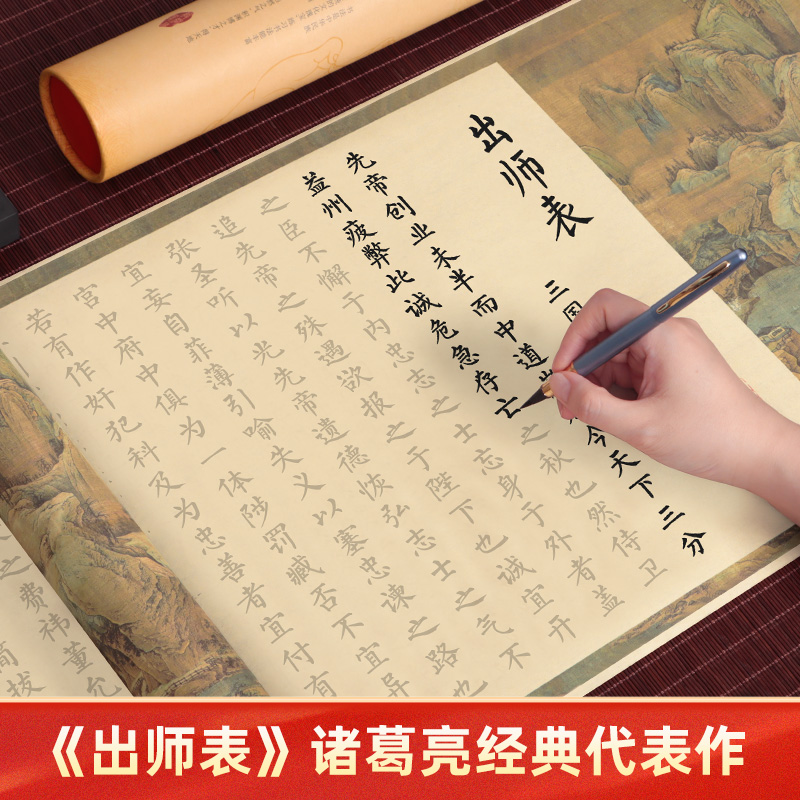 出师表
三国
先帝创业未半而中道
今天下三分
益州疲弊此诚危急存亡之秋也然侍卫
之臣不懈于内忠志之士忘身于外者盖
追先帝之殊遇欲报之于陛下也诚宜开
张圣听以光先帝遗德恢弘志士之气不
宜妄自菲薄引喻失义以塞忠谏之路也
宫中府中俱为一体陟罚臧否不宜异
若有作奸犯科及为忠善者宜付有
费祎董允
简拔
《出师表》诸葛亮经典代表作